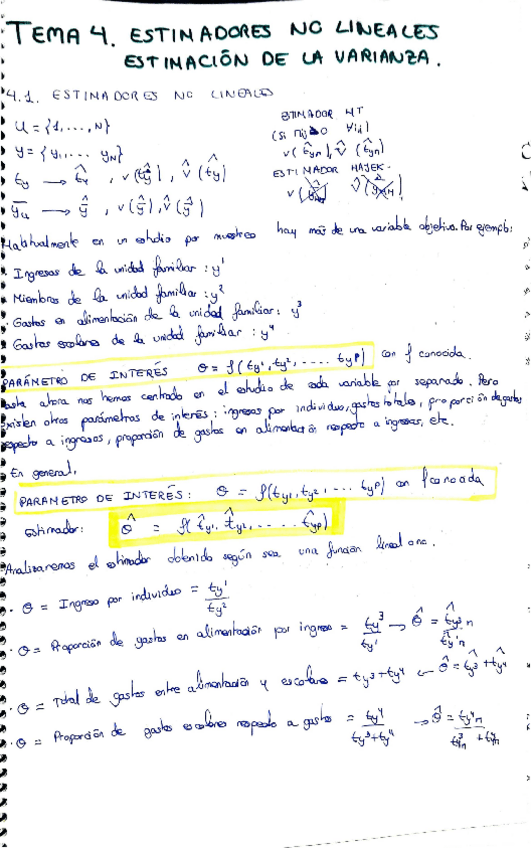 TEMA 4. ESTIMADORES NO LINEALES
ESTIMACIÓN DE LA VARIANZA.
4.1. ESTIMADORES NO LINEALES
U = {1,...,N}
y = {y₁,... y_N}
t_y → t̂_y , v(t̂_y), v̂(t̂_y)
ȳ_u → ŷ , v(ŷ), v̂(ŷ)
ESTIMADOR HT
(si πij>0 ∀i,j)
v(t̂_yπ), v̂(t̂_yπ)
ESTIMADOR HAJEK-
Habitualmente en un estudio por muestreo hay más de una variable objetivo. Por ejemplo:
· Ingresos de la unidad familiar : y¹
· Miembros de la unidad familiar : y²
· Gastos en alimentación de la unidad familiar: y³
· Gastos escolares de la unidad familiar : y⁴
PARÁMETRO DE INTERÉS θ = f(ty¹, ty², .... typ) con f conocida.
Hasta ahora nos hemos centrado en el estudio de cada variable por separado. Pero
existen otros parámetros de interés: ingresos por individuo, gastos totales, proporción de gastos
respecto a ingresos, proporción de gastos en alimentación respecto a ingresos, etc.
En general,
PARAMETRO DE INTERÉS: θ = f(ty₁, ty₂, ... typ) con f conocida
estimador: θ̂ = f(t̂y₁, t̂y₂, .... t̂yp)
Analizaremos el estimador obtenido según sea una función lineal o no.
· θ = Ingreso por individuo = ty¹/ty²
· θ = Proporción de gastos en alimentación por ingreso = ty³/ty¹ → θ̂ = t̂y³π/t̂y¹π
· θ = Total de gastos entre alimentación y escolares = ty³+ty⁴ ← θ̂ = t̂y³+t̂y⁴
· θ = Proporción de gastos escolares respecto a gastos = ty⁴/ty³+ty⁴ → θ̂ = t̂y⁴π/t̂y³π + t̂y⁴π